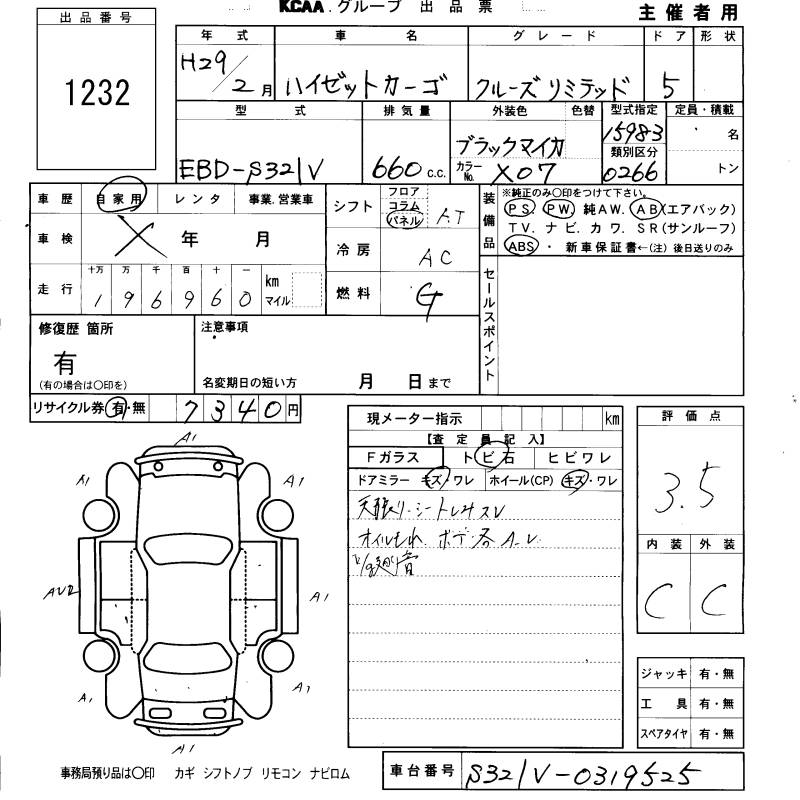 KCAA.グループ 出品票
主催者用
出品番号
1232
年式 車名 グレード ドア 形状
H29/2月 ハイゼットカーゴ クルーズ リミテッド 5
型式 排気量 外装色 色替 型式指定 定員・積載
EBD-S321V 660 c.c. ブラックマイカ 15983 名
カラーNo. X07 類別区分 0266 トン
車歴 自家用 レンタ 事業.営業車
車検 X 年 月
走行 十万 万 千 百 十 一
196960 km マイル
シフト フロア コラム パネル AT
冷房 AC
燃料 G
装備品 ※純正のみ〇印をつけて下さい。
PS PW. 純AW. AB(エアバック)
TV. ナビ. カワ. SR(サンルーフ)
ABS ・ 新車保証書←(注) 後日送りのみ
セールスポイント
修復歴 箇所
有
(有の場合は〇印を)
注意事項
名変期日の短い方 月 日まで
リサイクル券 有・無 7340円
現メーター指示 km
【査定員記入】
Fガラス トビ石 ヒビワレ
ドアミラー キズ・ワレ ホイール(CP) キズ・ワレ
天張り・シートしみスレ
オイルもれ ボデー各A-レ
評価点
3.5
内装 外装
C C
A1
A1 A1
A1
A1 A1
A1
ジャッキ 有・無
工具 有・無
スペアタイヤ 有・無
事務局預り品は〇印 カギ シフトノブ リモコン ナビロム
車台番号 S321V-0319525